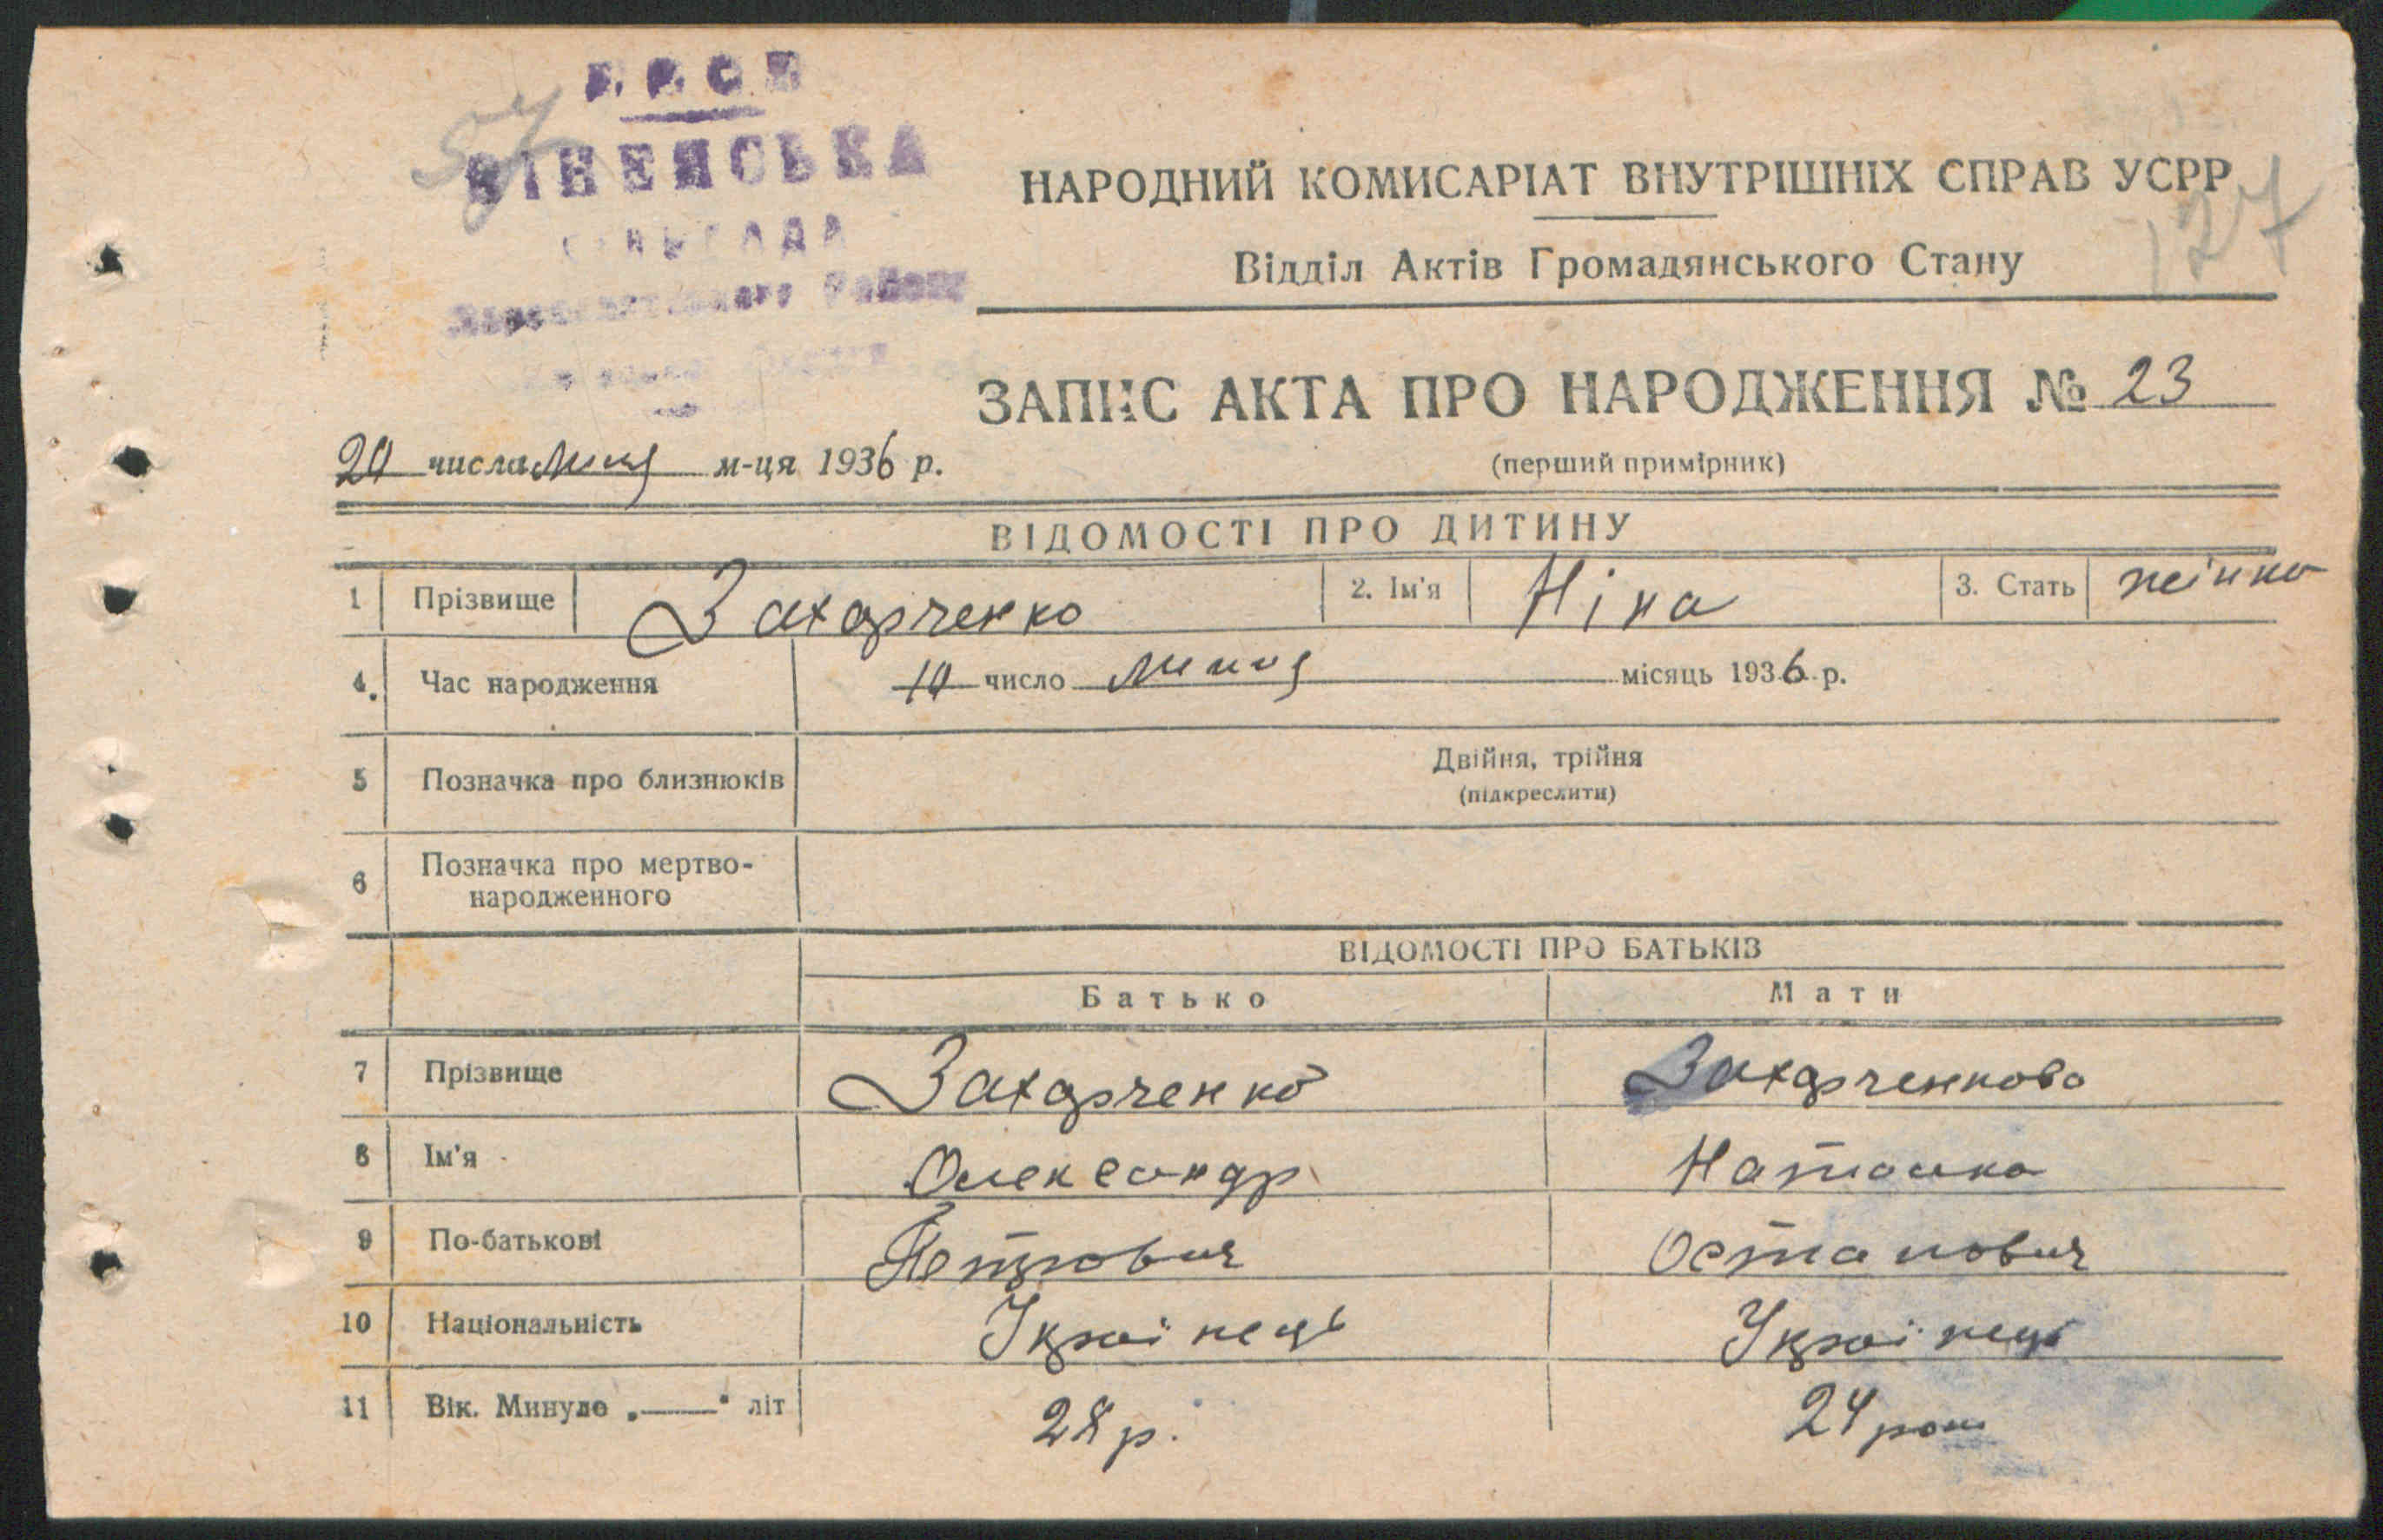 57
ВІНЕНСЬКА
СІЛЬРАДА
Району
НАРОДНИЙ КОМИСАРІАТ ВНУТРІШНІХ СПРАВ УСРР
127
Відділ Актів Громадянського Стану
ЗАПИС АКТА ПРО НАРОДЖЕННЯ № 23
(перший примірник)
20 числа липня м-ця 1936 р.
ВІДОМОСТІ ПРО ДИТИНУ
1 Прізвище Захарченко 2. Ім'я Ніна 3. Стать жінка
4. Час народження 10 число липня місяць 1936 р.
5 Позначка про близнюків Двійня, трійня
(підкреслити)
6 Позначка про мертво-
народженного
ВІДОМОСТІ ПРО БАТЬКІВ
Батько Мати
7 Прізвище Захарченко Захарченкова
8 Ім'я Олександр Наталка
9 По-батькові Петрович Остапович
10 Національність Українець Українець
11 Вік. Минуло „——“ літ 28 р. 24 роки